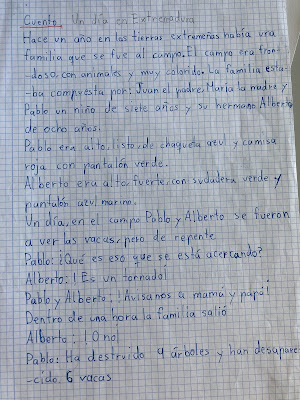 Cuento Un día en Extremadura
Hace un año en las tierras extremeñas había una
familia que se fue al campo. El campo era fron-
-doso, con animales y muy colorido. La familia esta-
-ba compuesta por: Juan el padre, María la madre y
Pablo un niño de siete años y su hermano Alberto
de ocho años.
Pablo era alto, listo, de chaqueta azul y camisa
roja con pantalón verde.
Alberto era alto, fuerte, con sudadera verde y
pantalón azul marino.
Un día, en el campo Pablo y Alberto se fueron
a ver las vacas, pero de repente
Pablo: ¿Qué es eso que se está acercando?
Alberto: ! Es un tornado!
Pablo y Alberto: ! Avisanos a mamá y papá!
Dentro de una hora la familia salió
Alberto: ! O no!
Pablo: Ha destruido 9 árboles y han desapare-
-cido 6 vacas